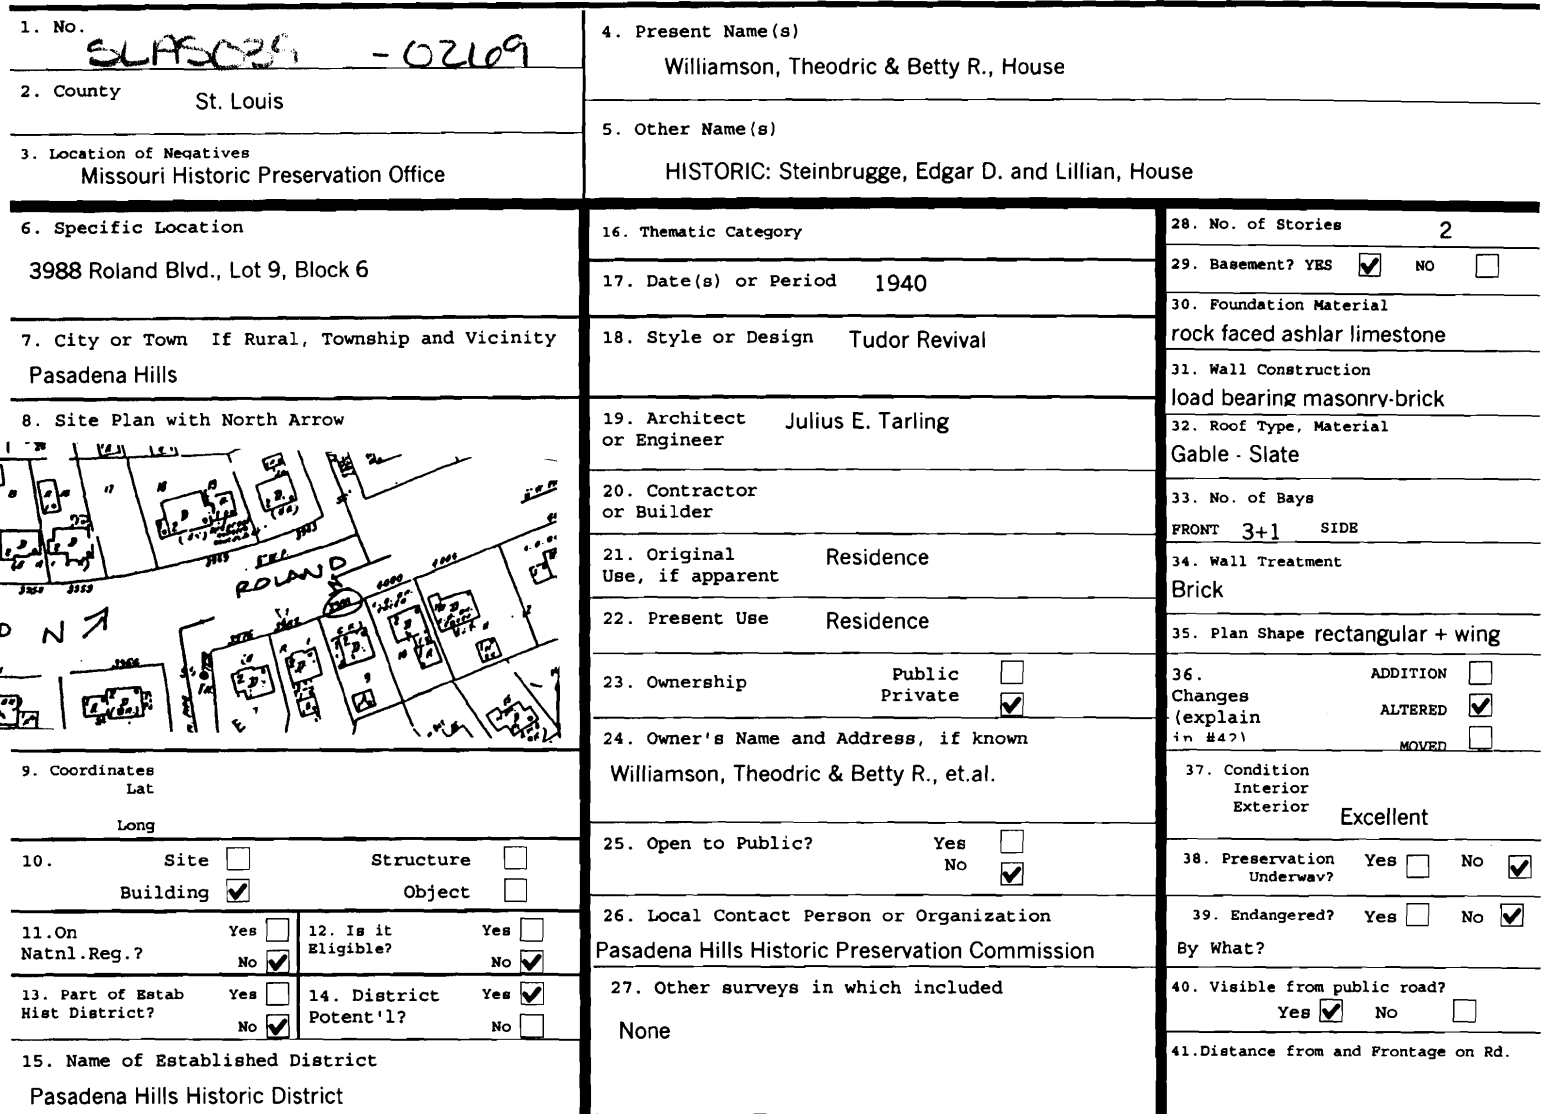 1. No.
SLAS039 -0269
2. County
St. Louis
3. Location of Negatives
Missouri Historic Preservation Office
4. Present Name(s)
Williamson, Theodric & Betty R., House
5. Other Name(s)
HISTORIC: Steinbrugge, Edgar D. and Lillian, House
6. Specific Location
3988 Roland Blvd., Lot 9, Block 6
7. City or Town If Rural, Township and Vicinity
Pasadena Hills
8. Site Plan with North Arrow
ROLAND
N
9. Coordinates
Lat
Long
10. Site Structure
Building Object
11.On
Natnl.Reg.?
Yes
No
12. Is it
Eligible?
Yes
No
13. Part of Estab
Hist District?
Yes
No
14. District
Potent'l?
Yes
No
15. Name of Established District
Pasadena Hills Historic District
16. Thematic Category
17. Date(s) or Period 1940
18. Style or Design Tudor Revival
19. Architect
or Engineer
Julius E. Tarling
20. Contractor
or Builder
21. Original
Use, if apparent
Residence
22. Present Use Residence
23. Ownership
Public
Private
24. Owner's Name and Address, if known
Williamson, Theodric & Betty R., et.al.
25. Open to Public?
Yes
No
26. Local Contact Person or Organization
Pasadena Hills Historic Preservation Commission
27. Other surveys in which included
None
28. No. of Stories 2
29. Basement? YES NO
30. Foundation Material
rock faced ashlar limestone
31. Wall Construction
load bearing masonry-brick
32. Roof Type, Material
Gable - Slate
33. No. of Bays
FRONT 3+1 SIDE
34. Wall Treatment
Brick
35. Plan Shape rectangular + wing
36.
Changes
(explain
in #42)
ADDITION
ALTERED
MOVED
37. Condition
Interior
Exterior
Excellent
38. Preservation
Underway?
Yes No
39. Endangered? Yes No
By What?
40. Visible from public road?
Yes No
41.Distance from and Frontage on Rd.